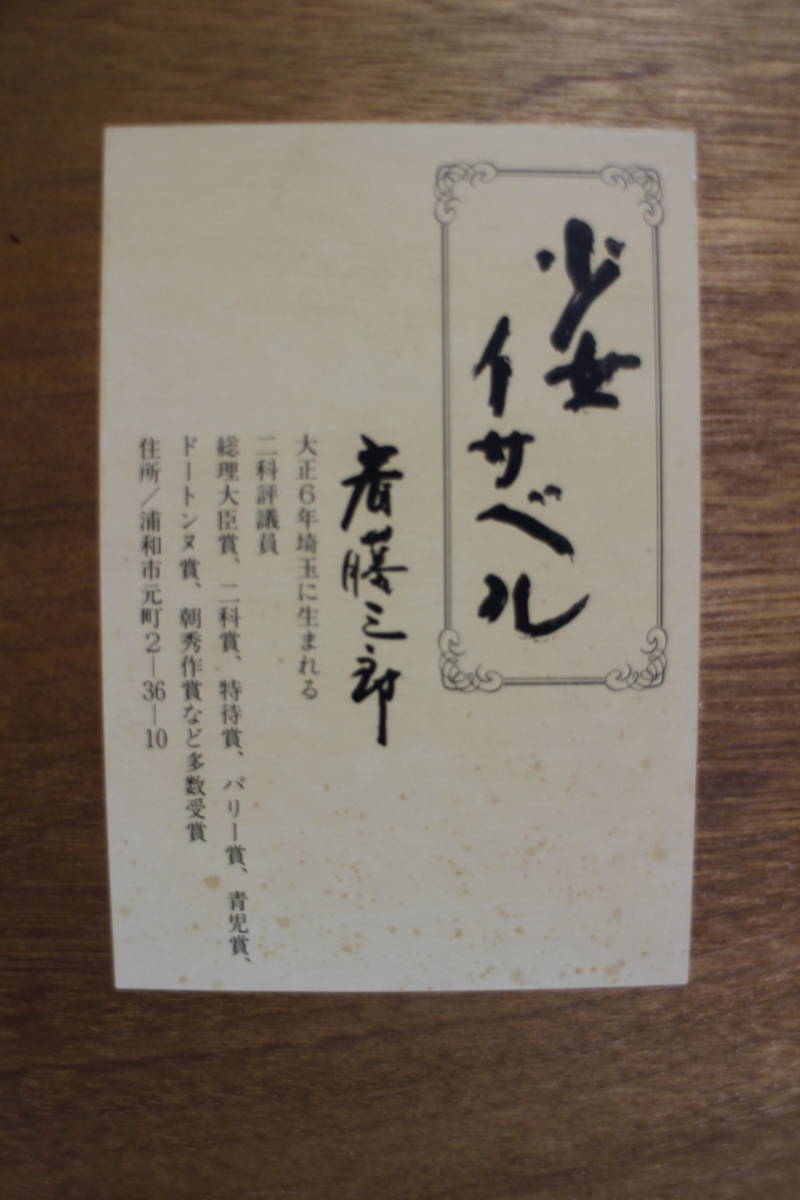 少女
イサベル
斎藤三郎
大正6年埼玉に生まれる
二科評議員
総理大臣賞、二科賞、特待賞、パリー賞、青児賞、
ドートンヌ賞、朝秀作賞など多数受賞
住所／浦和市元町2－36－10